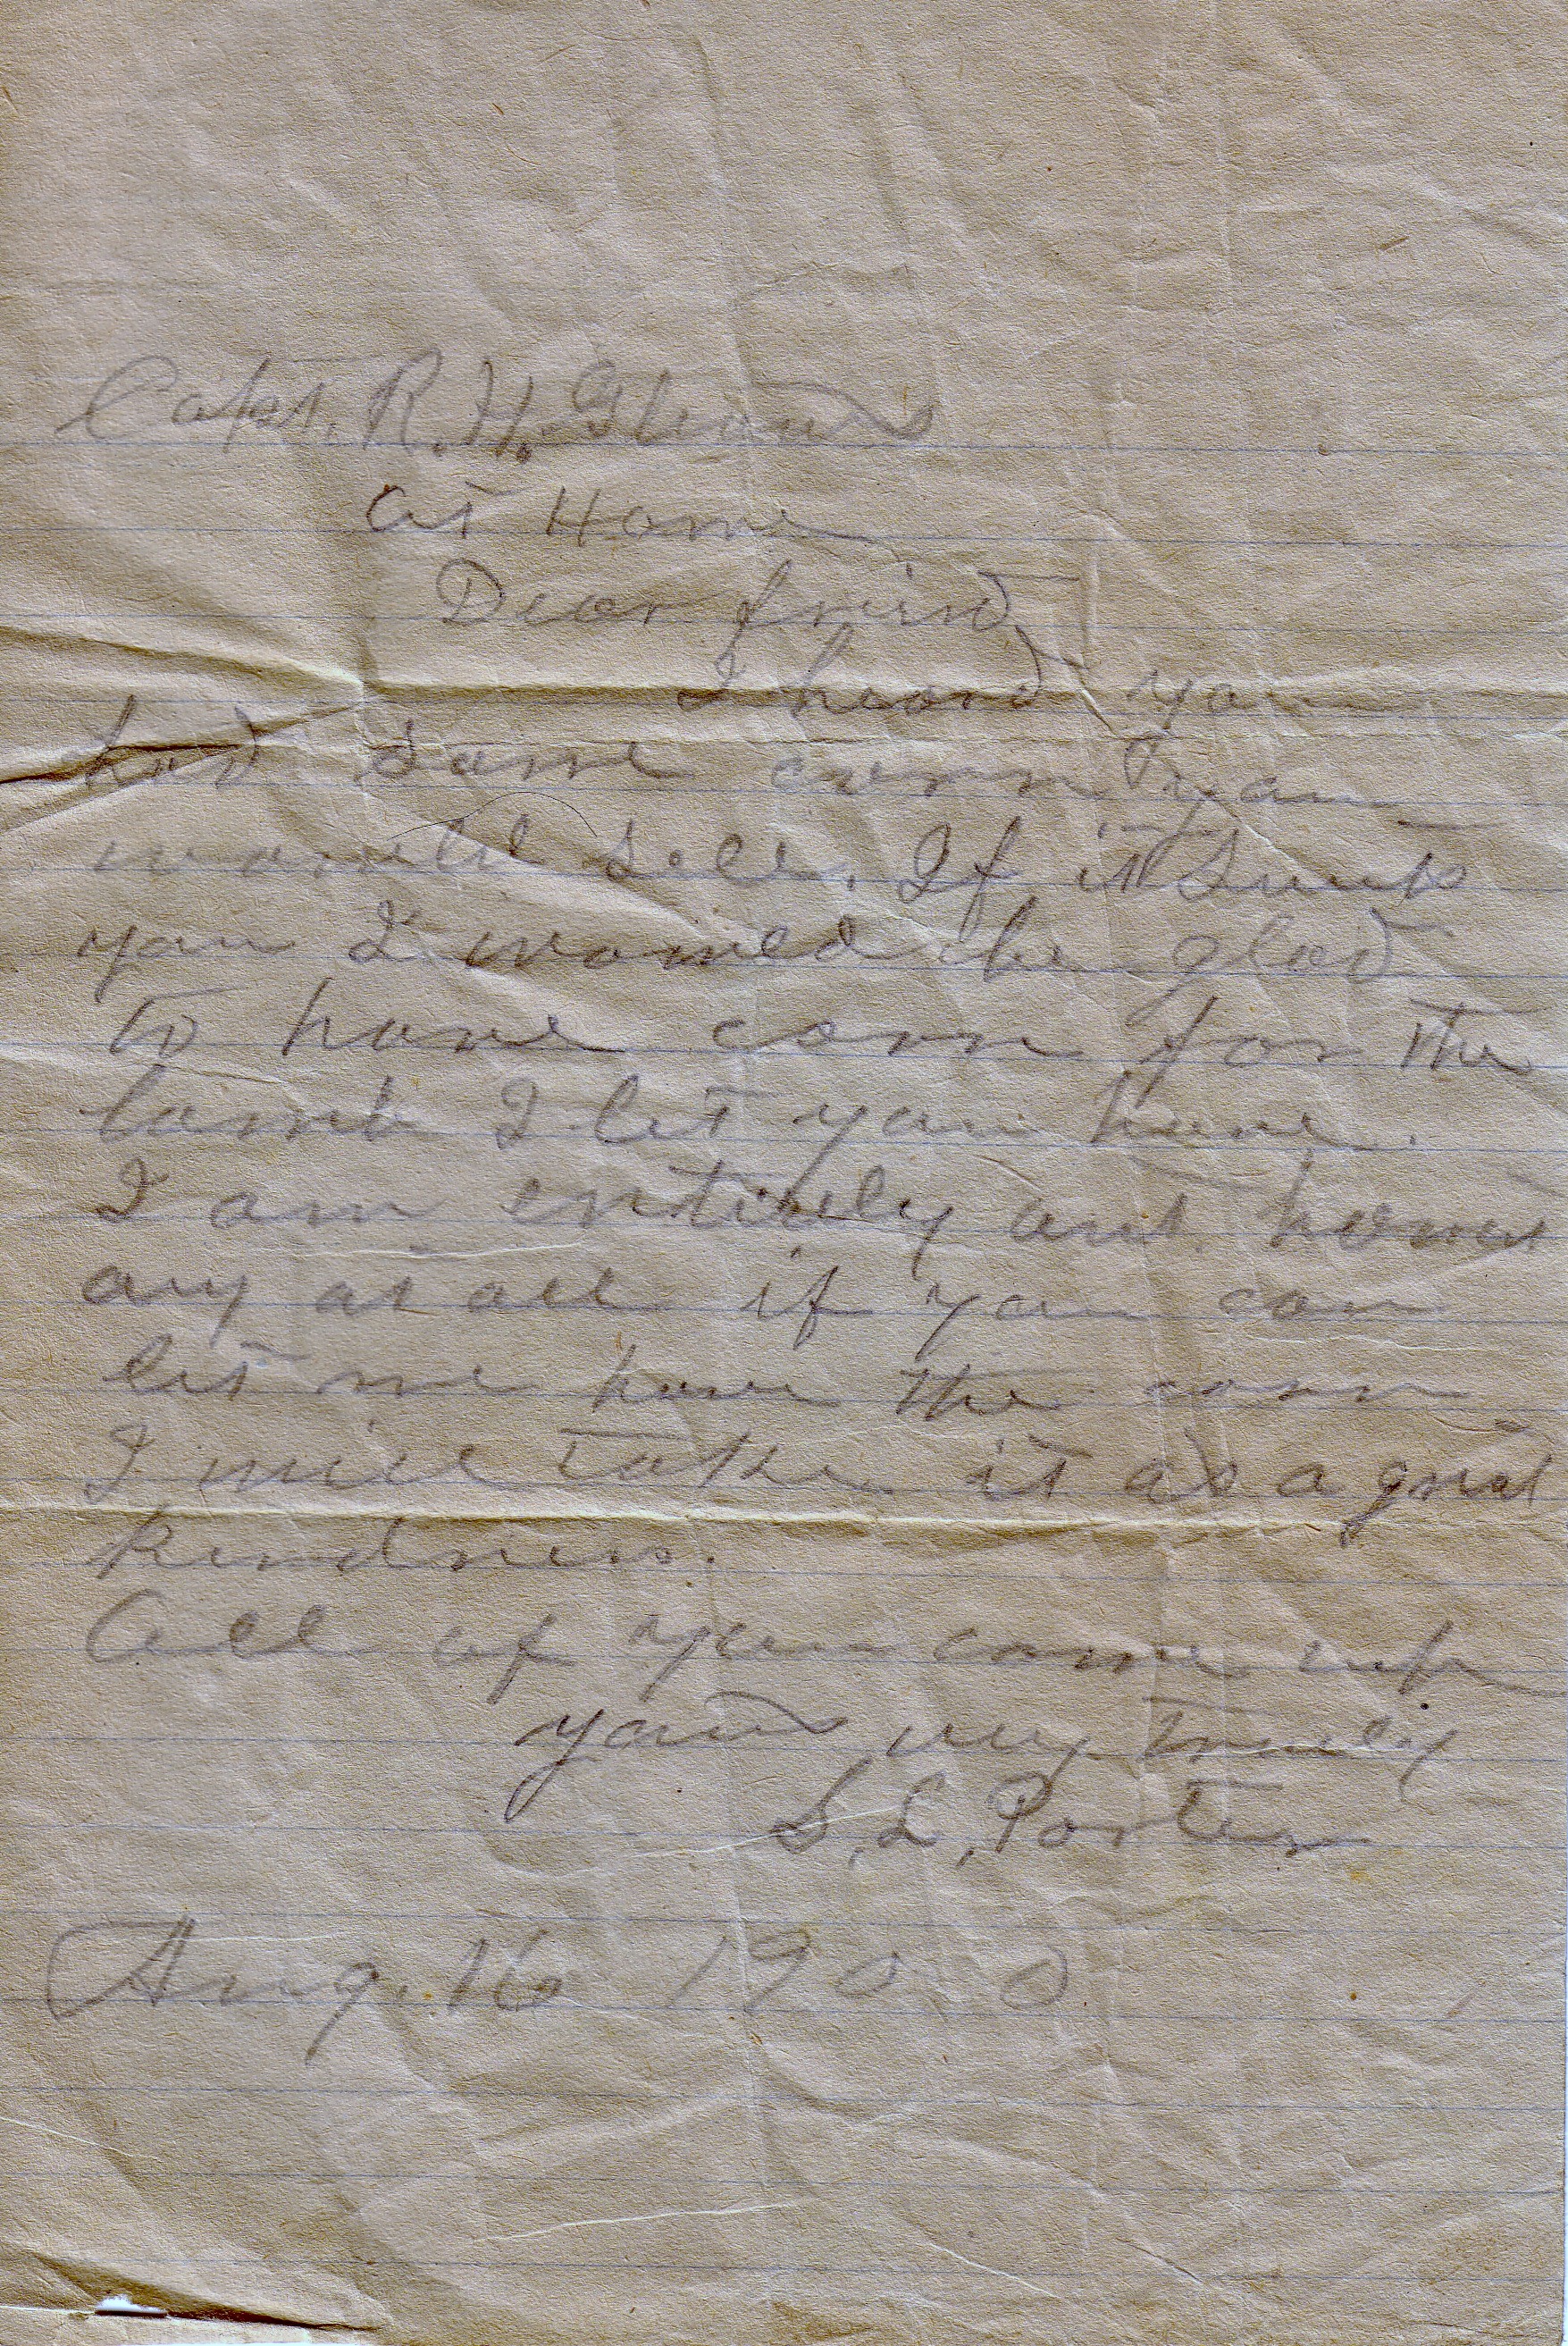 Capt. R. H. Glenn
at Home
Dear friend
I heard you
had some corn you
would sell. If it suits
you I would be glad
to have corn for the
lamb I let you have.
I am entirely out havnt
any at all if you can
let me have the corn
I will take it as a grat
kindness.
All of you come up
yours very truly
S. L. Porter
Aug. 16 1900